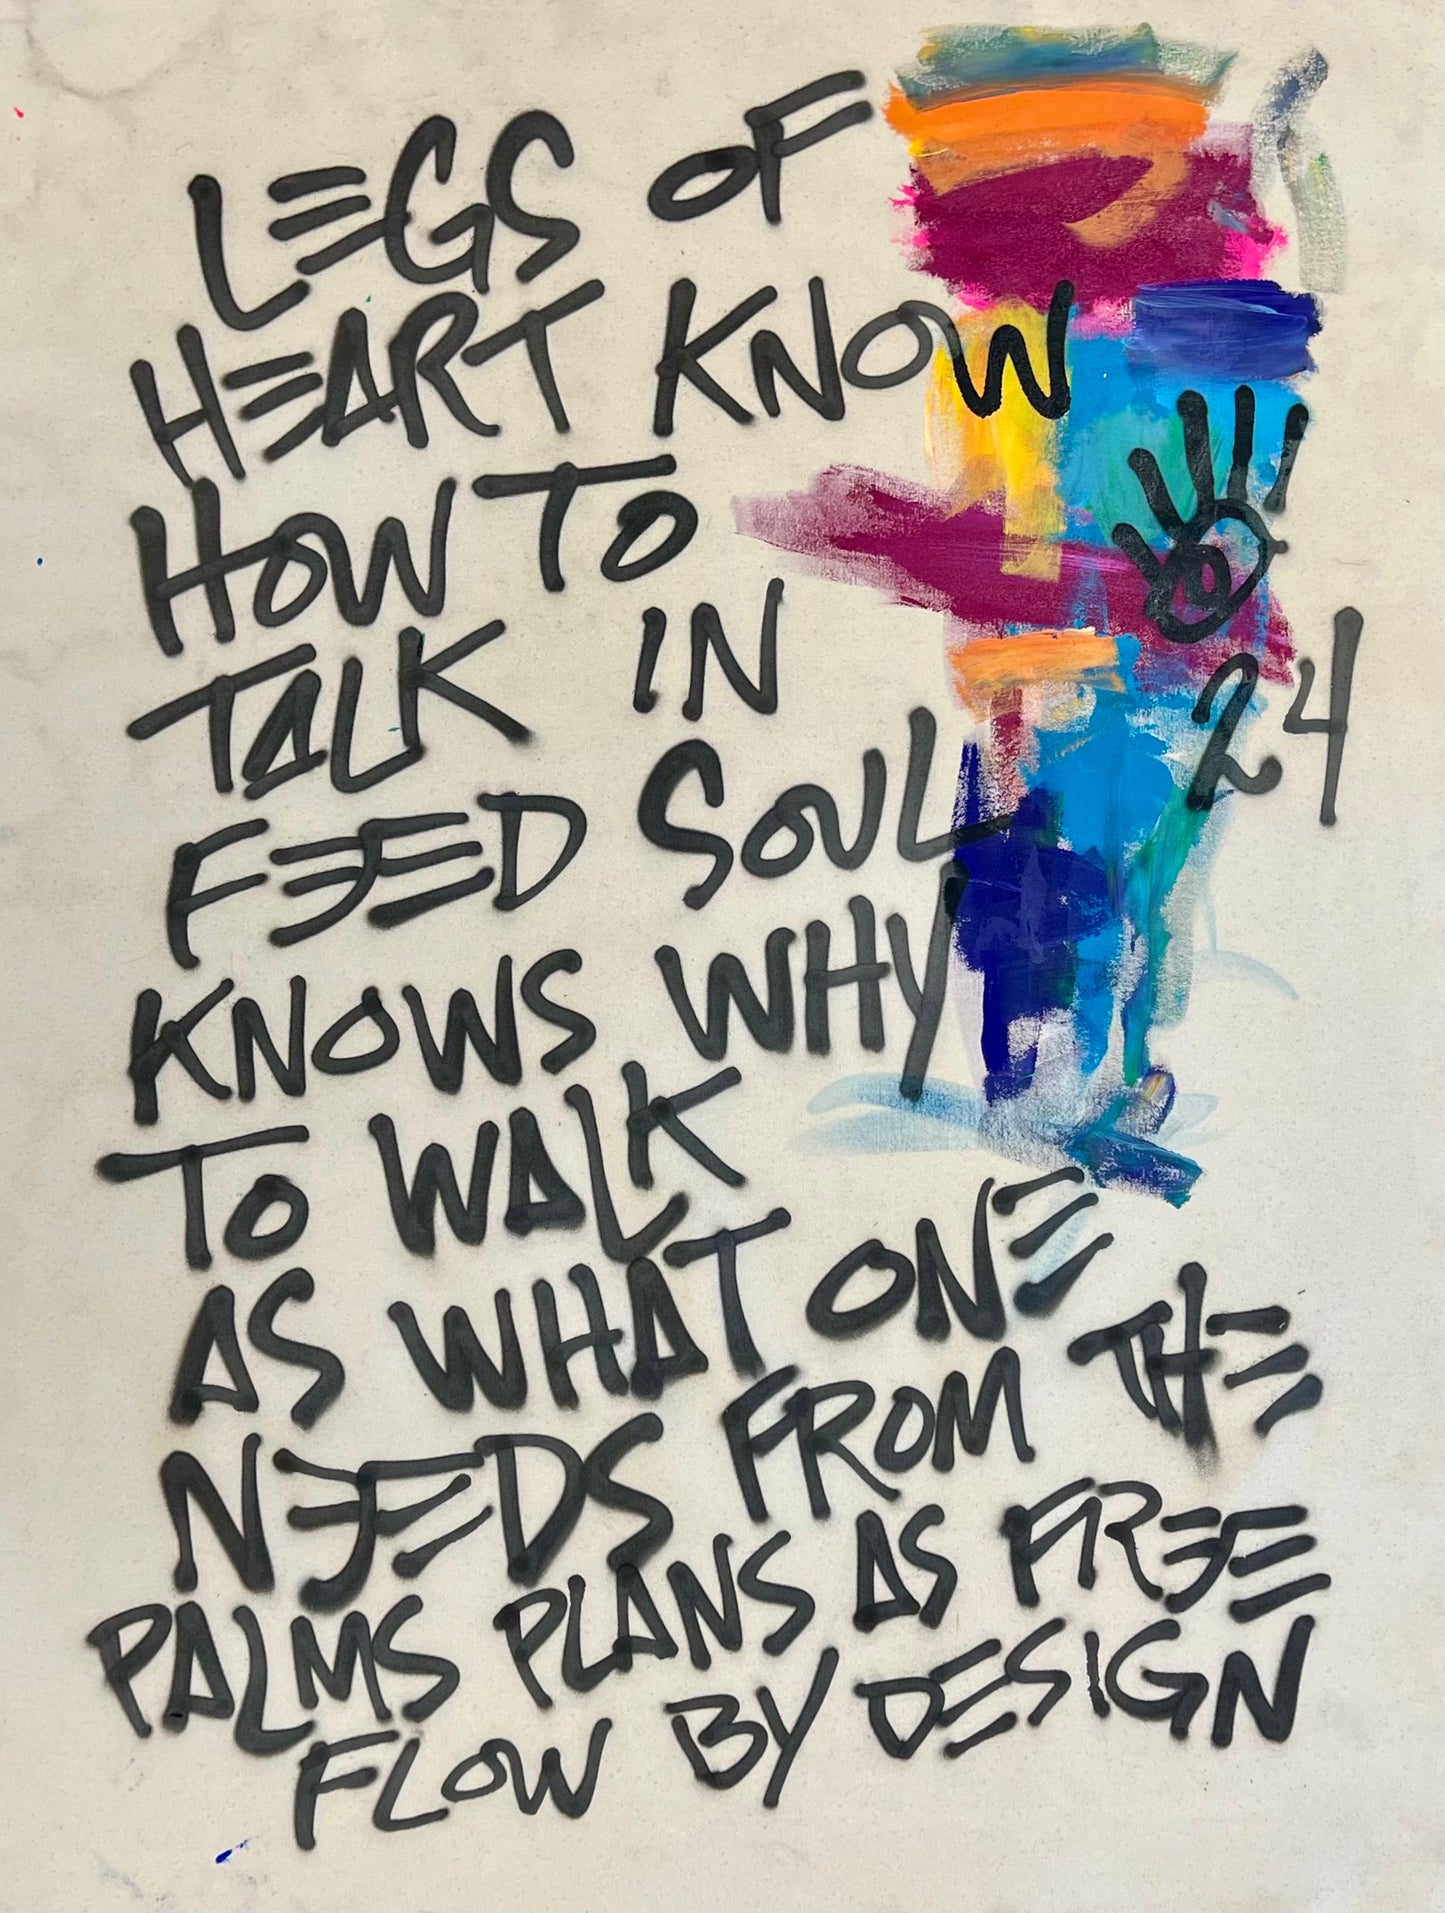 LEGS OF
HEART KNOW
HOW TO
TALK IN
FEED SOUL
KNOWS WHY
TO WALK
AS WHAT ONE
NEEDS FROM THE
PALMS PLANS AS FREE
FLOW BY DESIGN
24